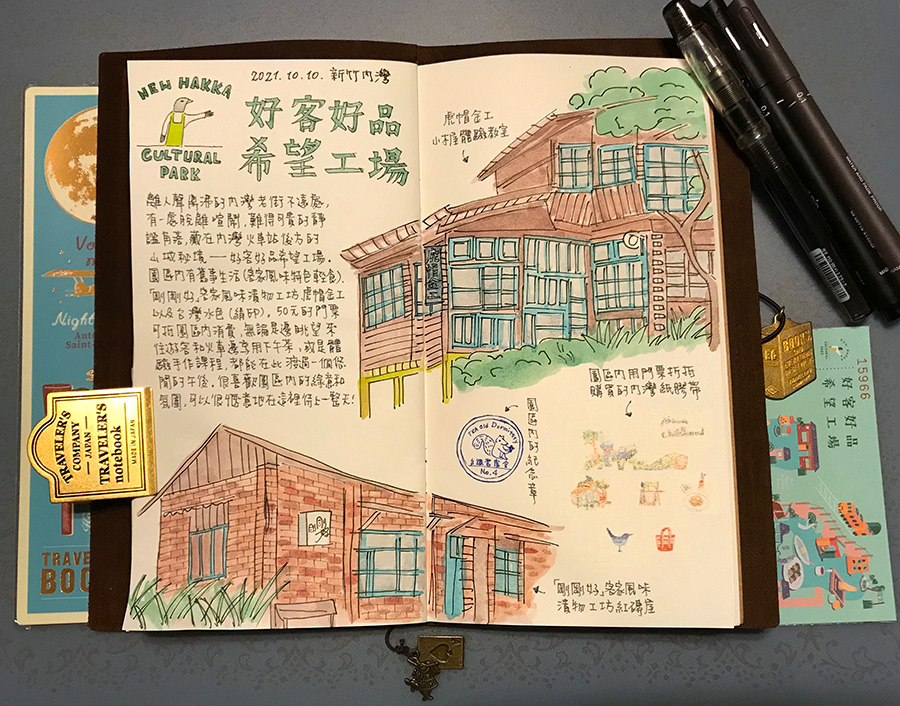 2021.10.10. 新竹內灣
NEW HAKKA
CULTURAL
PARK
好客好品
希望工場
離人聲鼎沸的內灣老街不遠處,
有一處能離喧鬧,難得可貴的靜
謐角落,藏在內灣火車站後方的
山坡秘境——好客好品希望工場.
園區內有舊事生活(客家風味特色輕食).
「剛剛好」客家風味漬物工坊.虎帽金工
以及台灣水色(績印), 50元的門票
可抵園區內消費,無論是邊眺望來
往遊客和火車邊享用下午茶,或是體
驗手作課程,都能在此渡過一個悠
閒的午後,很喜歡園區內的綠意和
氛圍,可以很愜意地在這裡待上一整天!
虎帽金工
小木屋體驗教室
虎帽金工
園區內用門票折抵
購買的內灣紙膠帶
園區內的紀念章
Old Dormitory
No.4
剛剛好
「剛剛好」客家風味
漬物工坊紅磚屋
TRAVELER'S
COMPANY
JAPAN
TRAVELER'S
notebook
MADE IN JAPAN
Night
Saint-
TRAV
BOO
15966
好客好品
希望工場
0.1